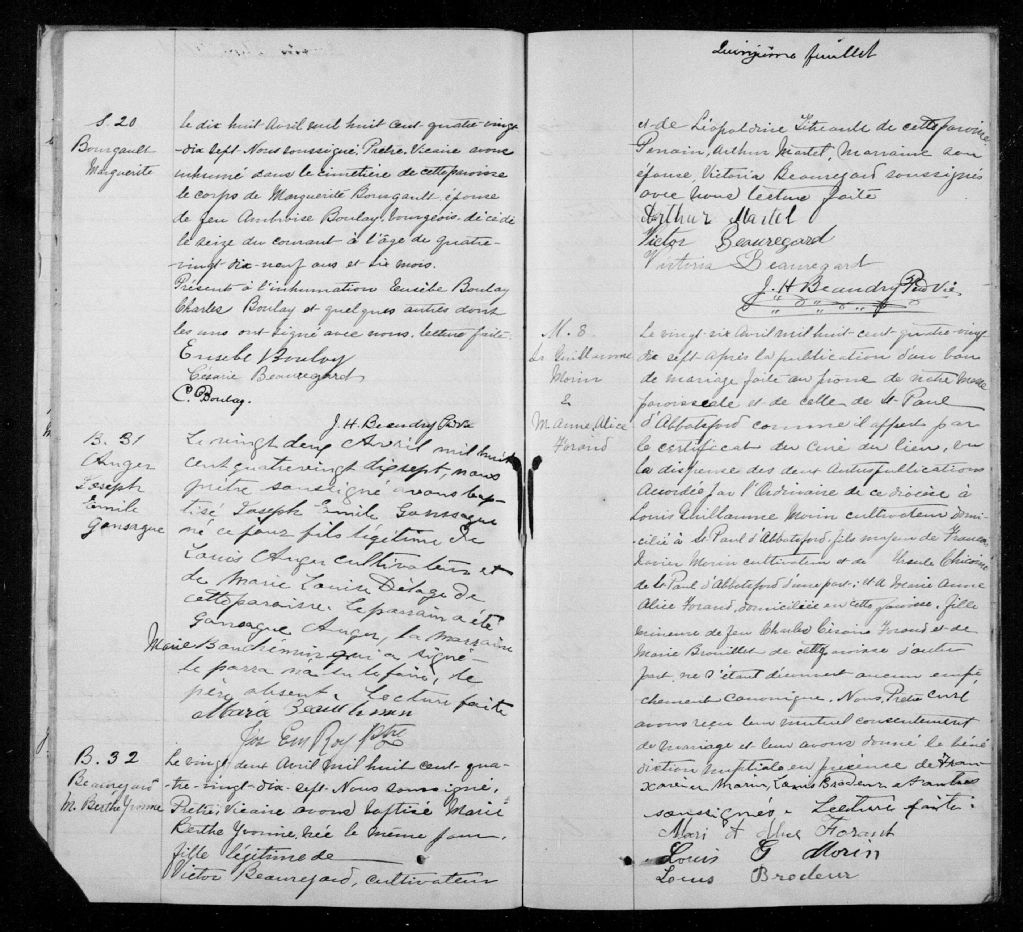 S. 20
Bourgault
Marguerite
le dix huit Avril mil huit cent quatre-vingt
-dix sept Nous soussigné, Pretre, Vicaire avons
inhumé dans le cimetière de cette paroisse
le corps de Marguerite Bourgault, épouse
de feu Ambroise Boulay, bourgeois, décédée
le seize du courant à l'âge de quatre-
vingt dix-neuf ans et six mois.
Présents à l'inhumation Eusèbe Boulay
Charles Boulay et quelques autres dont
les uns ont signé avec nous. lecture faite.
Eusebe Boulay
Césarie Beauregard
C. Boulay.
J. H. Beaudry Ptre Vic
B. 31
Auger
Joseph
Emile
Gonsague
Le vingt deux Avril mil huit
cent quatre vingt dix sept, nous
prêtre soussigné avons bap-
tisé Joseph Emile Gonsague
né ce jour fils légitime de
Louis Auger cultivateur et
de Marie Louise Délage de
cette paroisse. Le parrain a été
Gonsague Auger, la marraine
Marie Bauchemin qui a signé
le parrain n'a su le faire, le
père absent. Lecture faite
Maria Beauchemin
Jos Em Roy Ptre
B. 32
Beauregard
M. Berthe Yvonne
Le vingt deux Avril mil huit cent qua-
tre-vingt-dix-sept. Nous soussigné,
Pretre, Vicaire avons baptisé Marie
Berthe Yvonne, née le même jour,
fille légitime de
Victor Beauregard, cultivateur
Quinzième feuillet
et de Léopoldine Théroulx de cette paroisse,
Parrain, Arthur Martel, Marraine son
épouse, Victoria Beauregard soussignés
avec nous lecture faite
Arthur Martel
Victor Beauregard
Victoria Beauregard
J. H. Beaudry Ptre Vic.
M. 8
Ls Guillaume
Morin
&
M. Anne Alice
Forand
Le vingt-six Avril mil huit-cent quatre-vingt
dix sept après la publication d'un ban
de mariage faite au prone de notre Messe
paroissiale et de celle de St Paul
d'Abbotsford comme il appert par
le certificat du curé du lieu, vu
la dispense des deux autres publications
accordés par l'Ordinaire de ce diocèse à
Louis Guillaume Morin cultivateur domi-
cilié à St Paul d'Abbotsford, fils majeur de Francois
Xavier Morin cultivateur et de Ursule Chicoine
de St Paul d'Abbotsford d'une part; et à Marie Anne
Alice Forand, domiciliée en cette paroisse, fille
mineure de feu Charles Césaire Forand et de
Marie Brouillet de cette paroisse d'autre
part, ne s'étant découvert aucun empê
chement canonique, Nous, Pretre curé
avons reçu leur mutuel consentement
de mariage et leur avons donné la béné
diction nuptiale en présence de Fran-
xavier Morin, Louis Brodeur et autres
soussignés. Lecture faite.
Mari A Alice Forant
Louis G Morin
Louis Brodeur